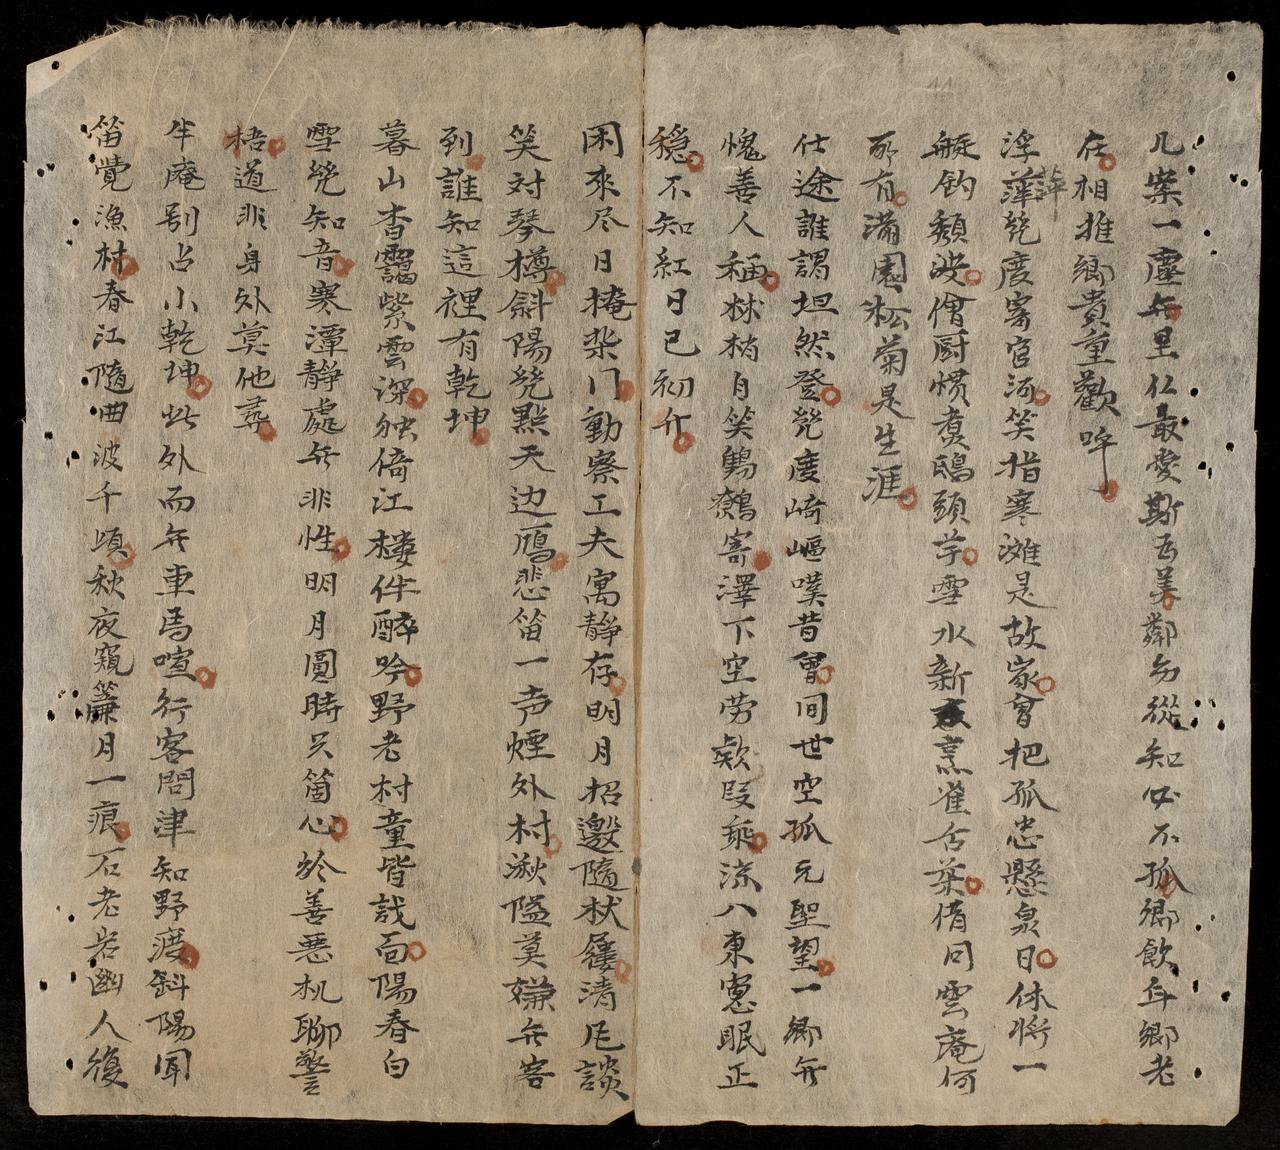 几案一塵無里仁最愛斯吾美鄰勿從知必不孤鄉飲年鄉老
在相推鄉貴童歡呼
浮萍幾度寄官河笑指寒灘是故家曾把孤忠懸泉日休將一
艇釣頹波僧厨慣煑鴟頭芋雪水新烹雀舌茶借问雲庵何
所有滿園松菊是生涯
仕途誰謂坦然登幾度崎嶇嘆昔曾间世空孤元聖望一鄉無
愧善人稱林梢自笑鷦鷯寄澤下空劳款段乘涼八東窓眠正
穏不知紅日已初升
困來尽日掩柴门動察工夫寓静存明月招邀隨杖屨清尾談
笑对琴樽斜陽幾點天边鴈悲笛一声煙外村湫隘莫嫌無客
到誰知這裡有乾坤
暮山杳靄紫雲深独倚江楼伴醉吟野老村童皆戏面陽春白
雪幾知音寒潭静處無非性明月圓時只箇心於善恶机聊警
悟道非身外莫他尋
半庵别占小乾坤此外而無車馬喧行客問津知野渡斜陽聞
笛覺漁村春江隨曲波千頃秋夜窺簾月一痕石老岩幽人復